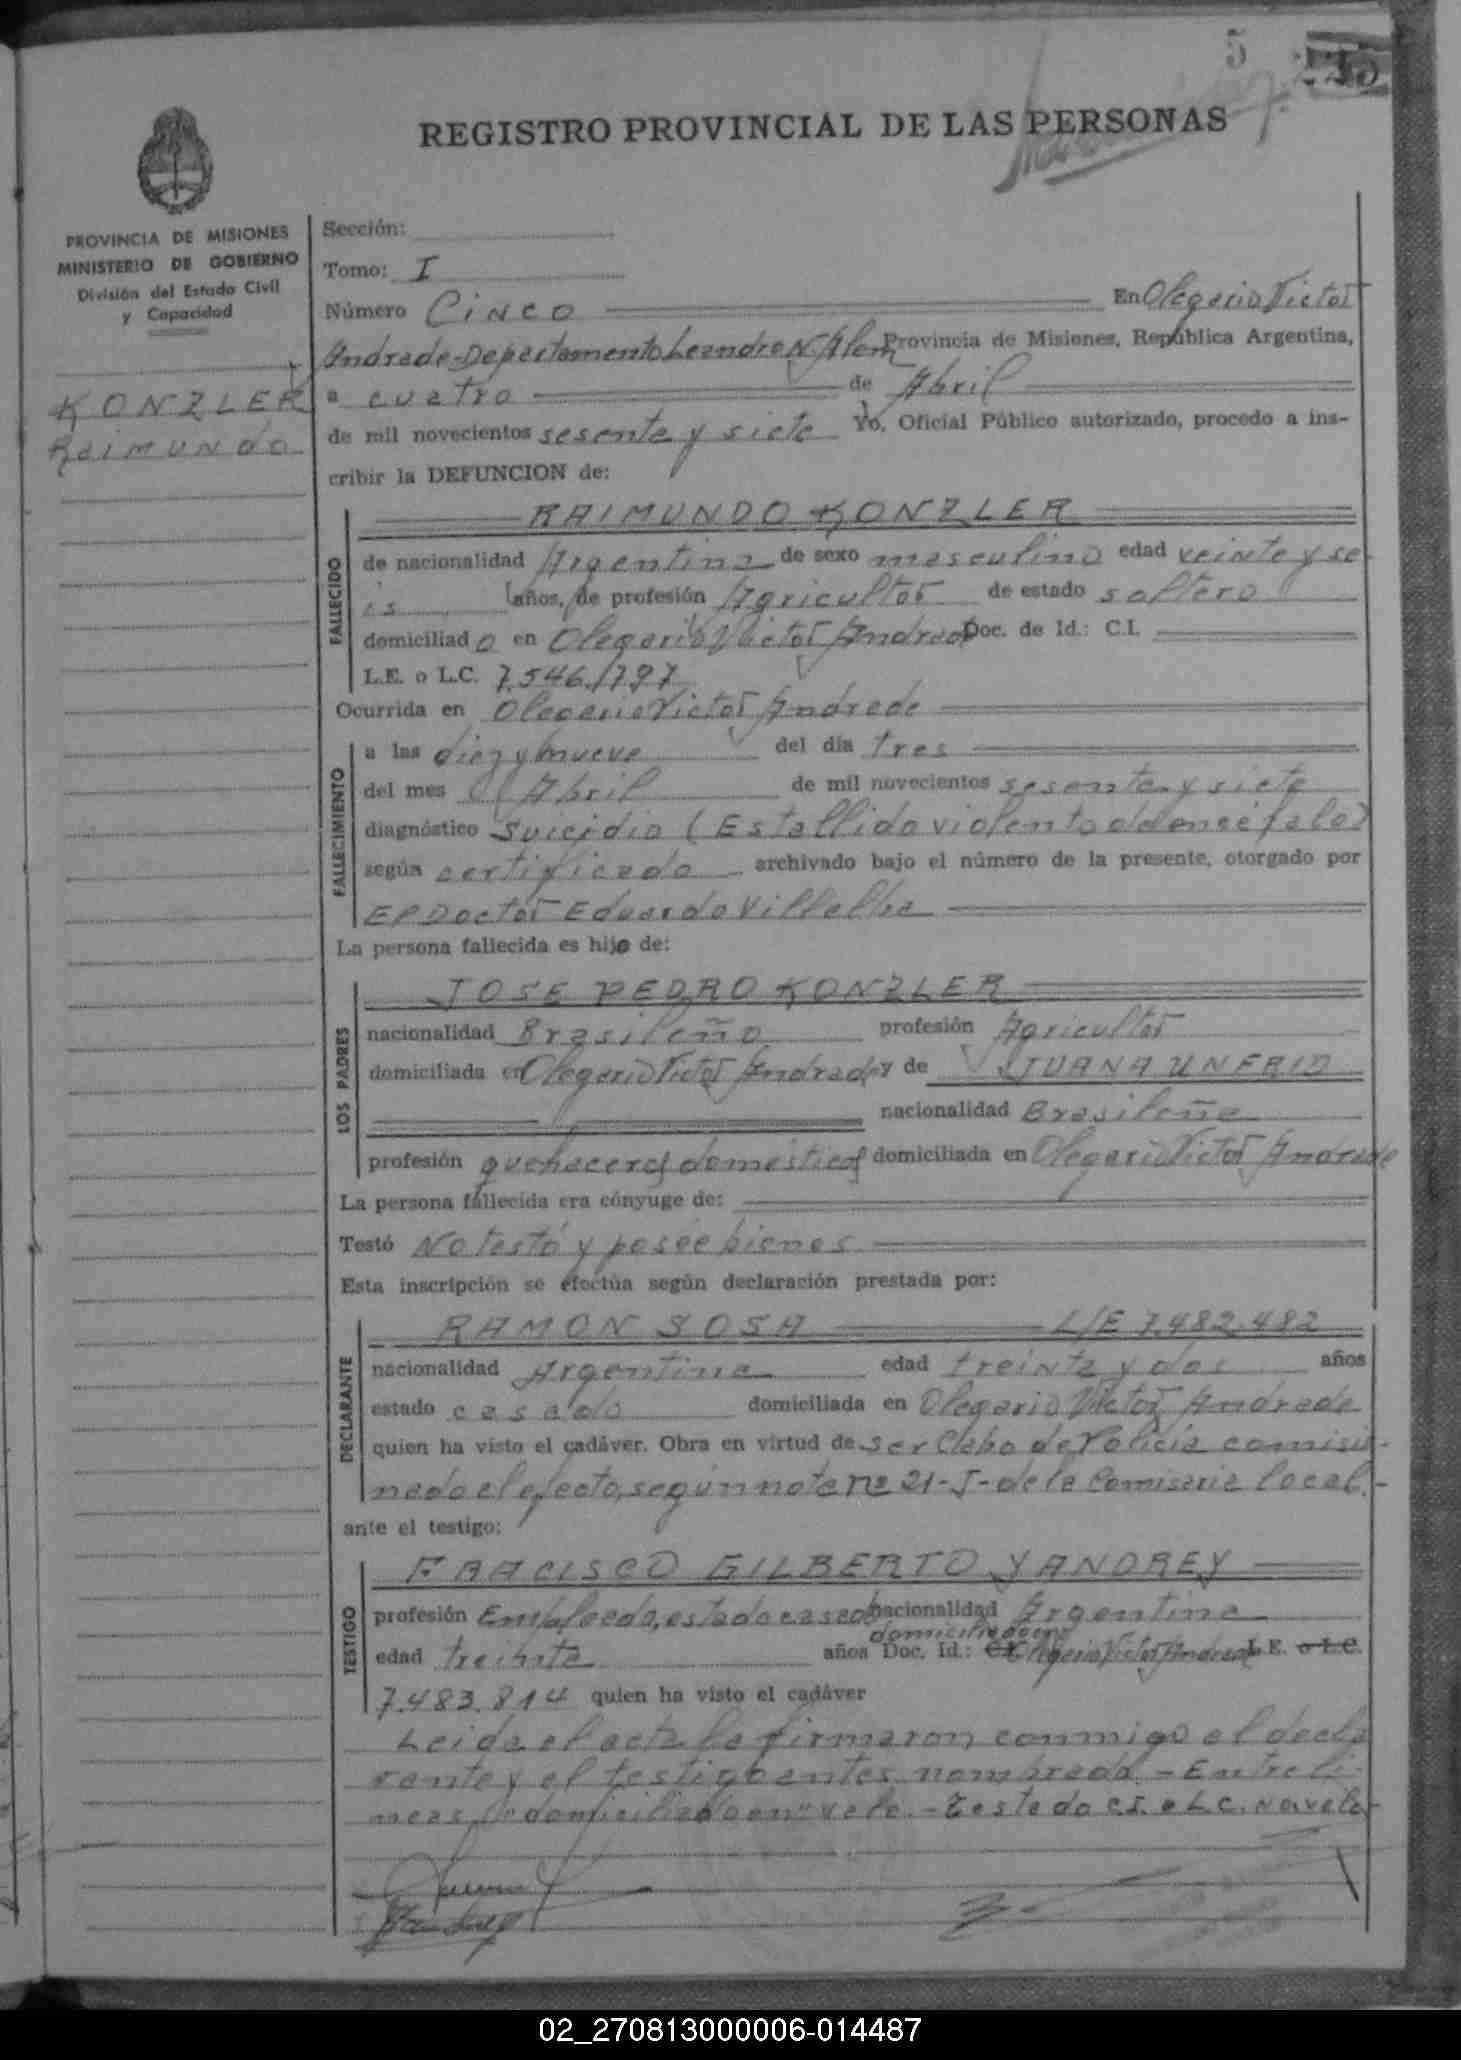 5 225
REGISTRO PROVINCIAL DE LAS PERSONAS
PROVINCIA DE MISIONES
MINISTERIO DE GOBIERNO
División del Estado Civil
y Capacidad
KONZLER
Raimundo
Sección:
Tomo: I
Número Cinco En Olegario Victor
Andrade-Departamento Leandro N. Alem Provincia de Misiones, República Argentina,
a cuatro de Abril
de mil novecientos sesenta y siete Yo, Oficial Público autorizado, procedo a ins-
cribir la DEFUNCION de:
RAIMUNDO KONZLER
FALLECIDO
de nacionalidad Argentina de sexo masculino edad veinte y se-
is años, de profesión Agricultor de estado soltero
domiciliado en Olegario Victor Andrade Doc. de Id.: C.I.
L.E. o L.C. 7.546.797
Ocurrida en Olegario Victor Andrade
FALLECIMIENTO
a las diez y nueve del día tres
del mes Abril de mil novecientos sesenta y siete
diagnóstico Suicidio (Estallido violento del encéfalo)
según certificado archivado bajo el número de la presente, otorgado por
El Doctor Eduardo Villalba
La persona fallecida es hijo de:
LOS PADRES
JOSE PEDRO KONZLER
nacionalidad Brasileño profesión Agricultor
domiciliada en Olegario Victor Andrade y de JUANA UNFRID
nacionalidad Brasileña
profesión quehaceres domésticos domiciliada en Olegario Victor Andrade
La persona fallecida era cónyuge de:
Testó No testó y posée bienes
Esta inscripción se efectúa según declaración prestada por:
DECLARANTE
RAMON SOSA L/E 7.482.482
nacionalidad Argentina edad treinta y dos años
estado casado domiciliada en Olegario Victor Andrade
quien ha visto el cadáver. Obra en virtud de ser Cabo de Policía comisio-
nado al efecto, según nota nº 21-J- de la Comisaria local.-
ante el testigo:
TESTIGO
FRACISCO GILBERTO YANDREY
profesión Empleado, estado casado nacionalidad Argentina
domiciliado en
edad treinta años Doc. Id.: C.I. Olegario Victor Andrade L.E. o L.C.
7.483.814 quien ha visto el cadáver
Leida el acta la firmaron conmigo el decla
rante y el testigo antes nombrado.-Entreli-
neas "domiciliado en" vale.-Testado C.I. o L.C. no vale-
02_270813000006-014487